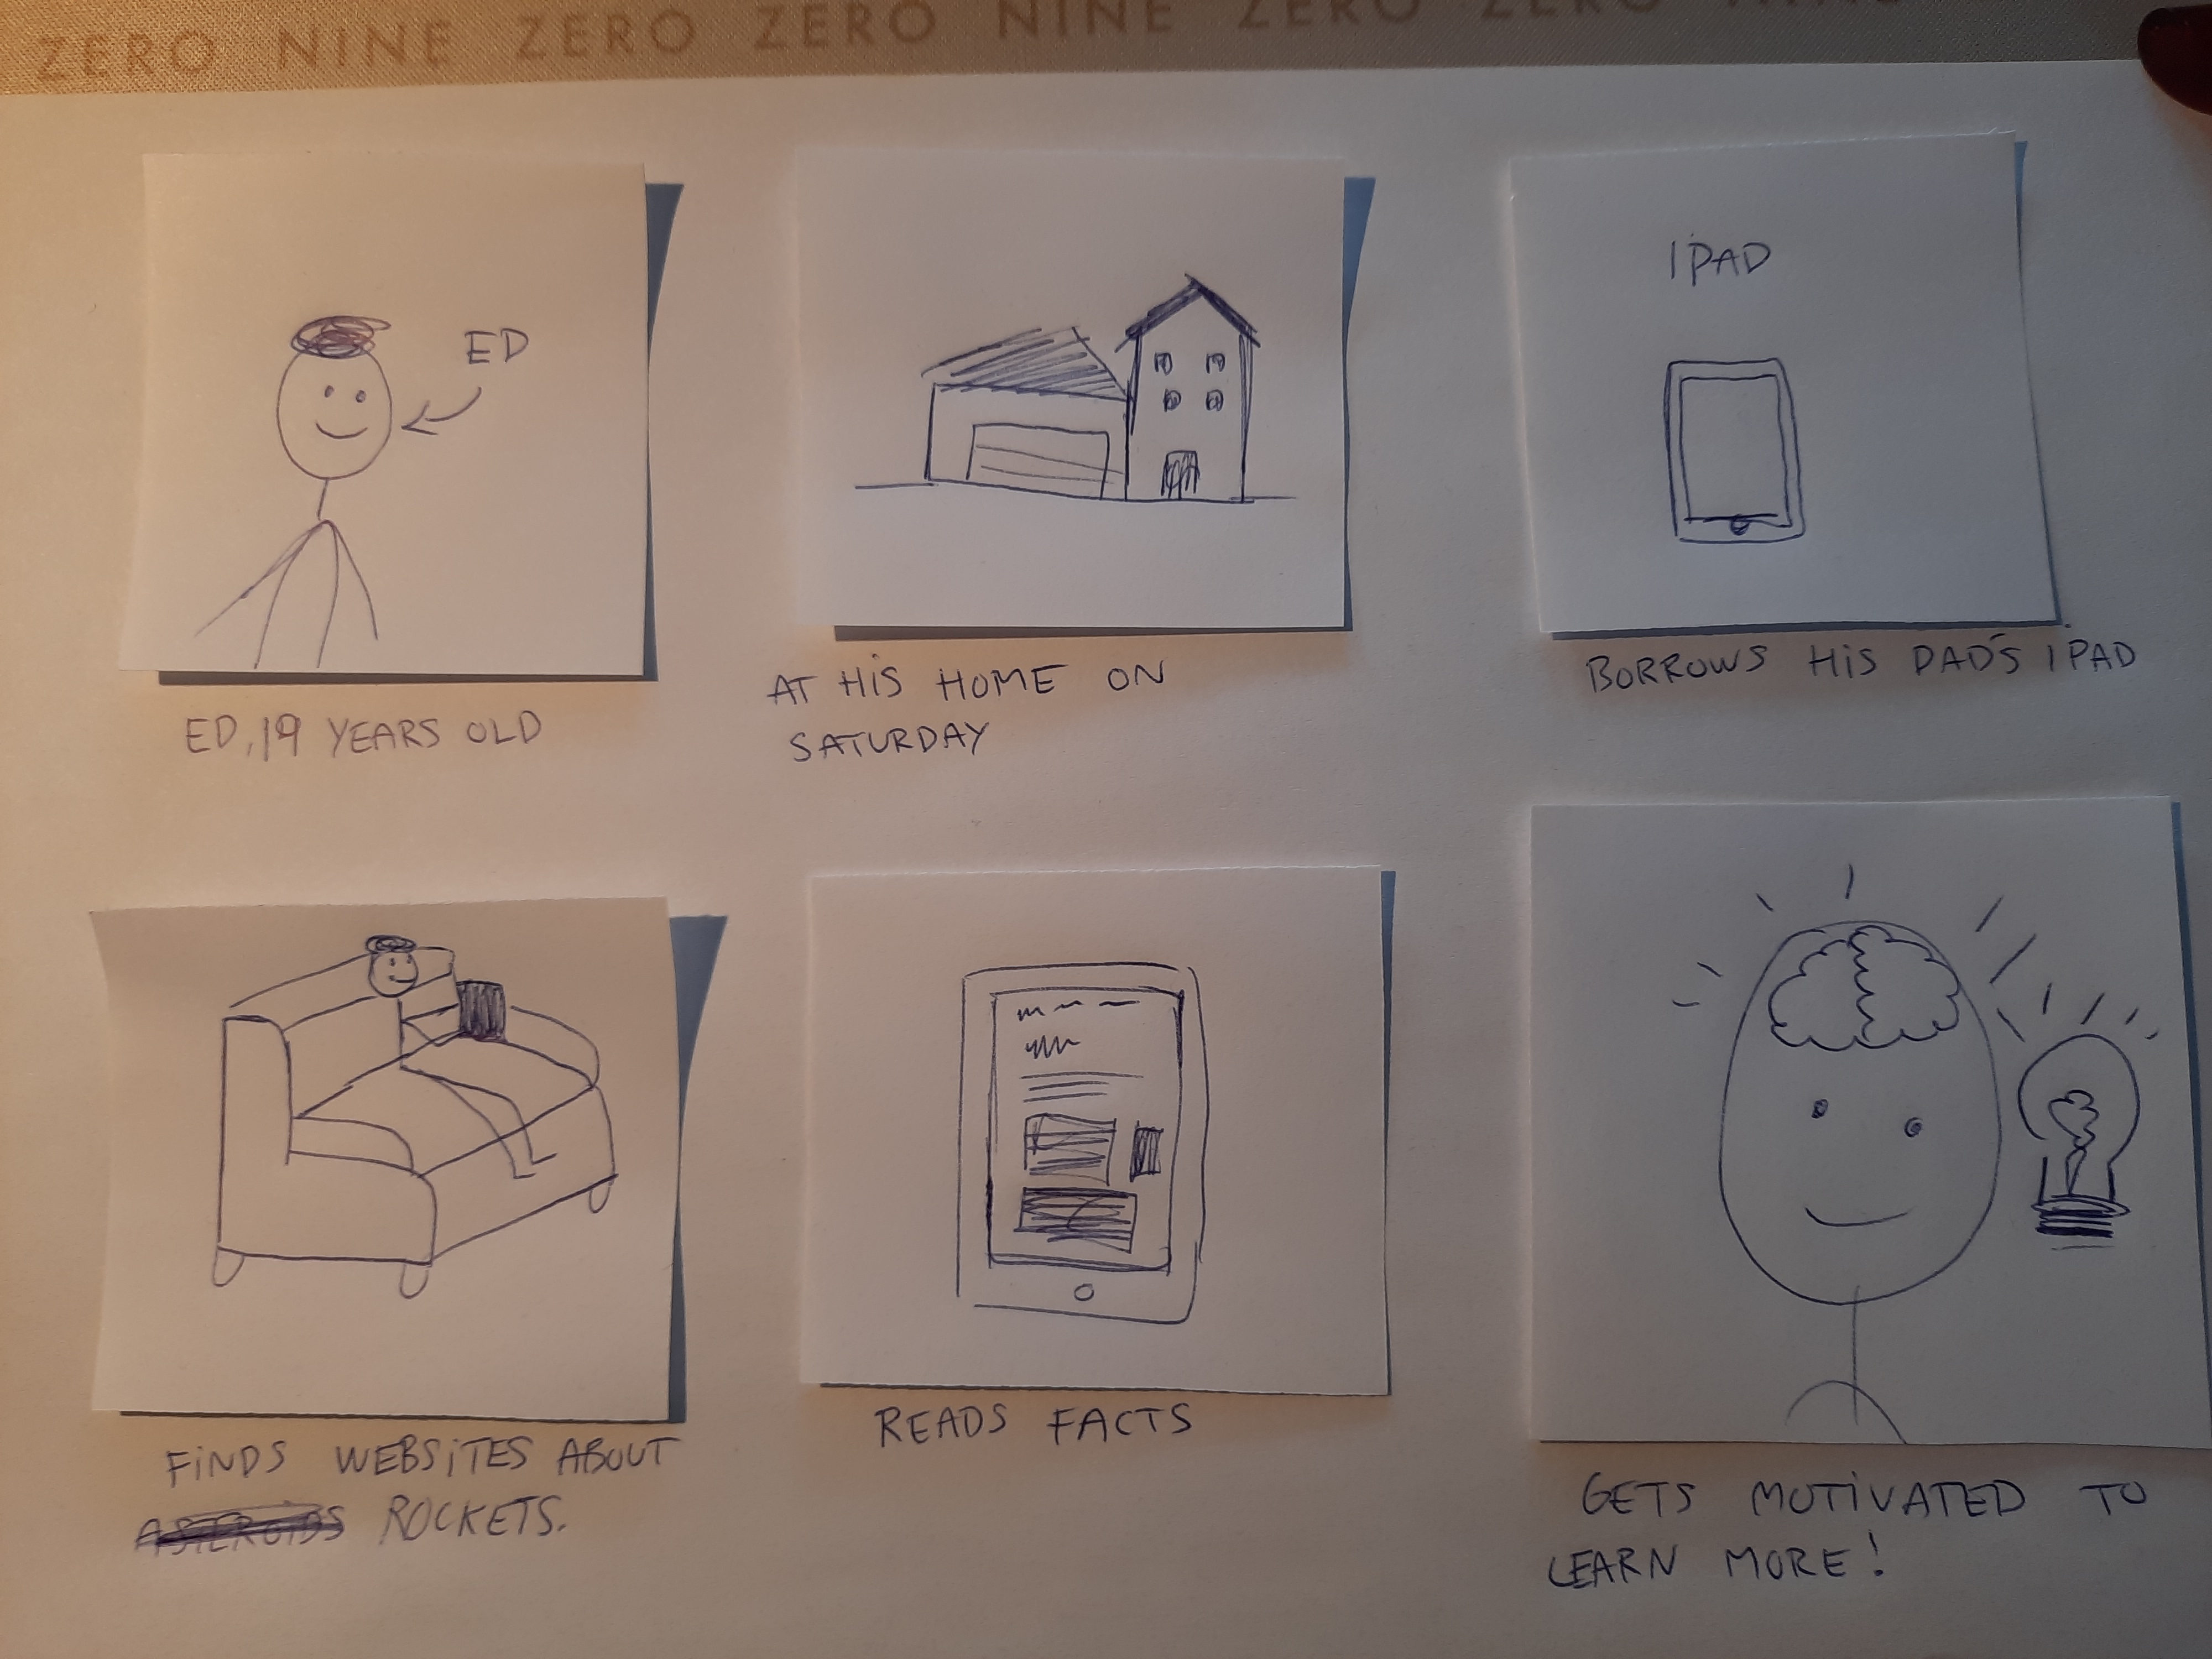 ZERO NINE ZERO ZERO NINE ZERO ZERO NINE
ED
ED, 19 YEARS OLD
AT HIS HOME ON
SATURDAY
IPAD
BORROWS HIS DAD'S IPAD
FINDS WEBSITES ABOUT
ASTEROIDS ROCKETS.
READS FACTS
GETS MOTIVATED TO
LEARN MORE!